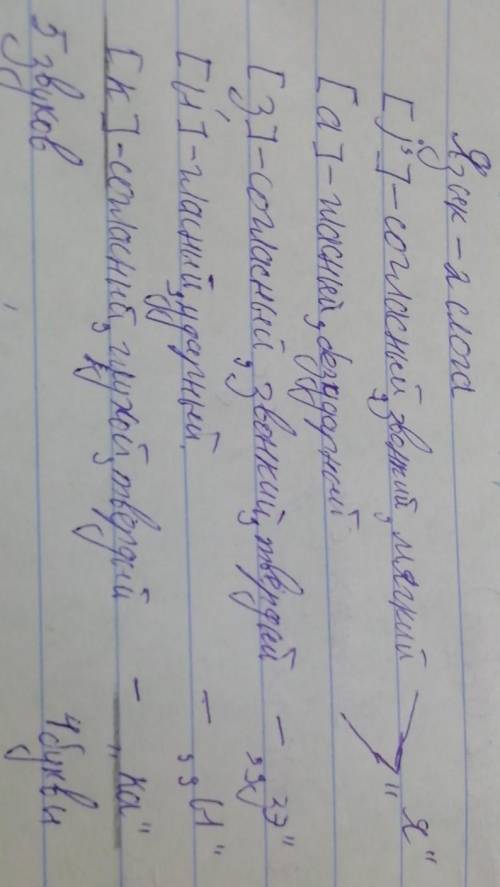 Язык - 2 слога
[й'] - согласный, звонкий, мягкий
"я"
[а] - гласный, безударный
[з] - согласный, звонкий, твёрдый - "зэ"
[и'] - гласный, ударный - "и"
[к] - согласный, глухой, твёрдый - "ка"
5 звуков 4 буквы